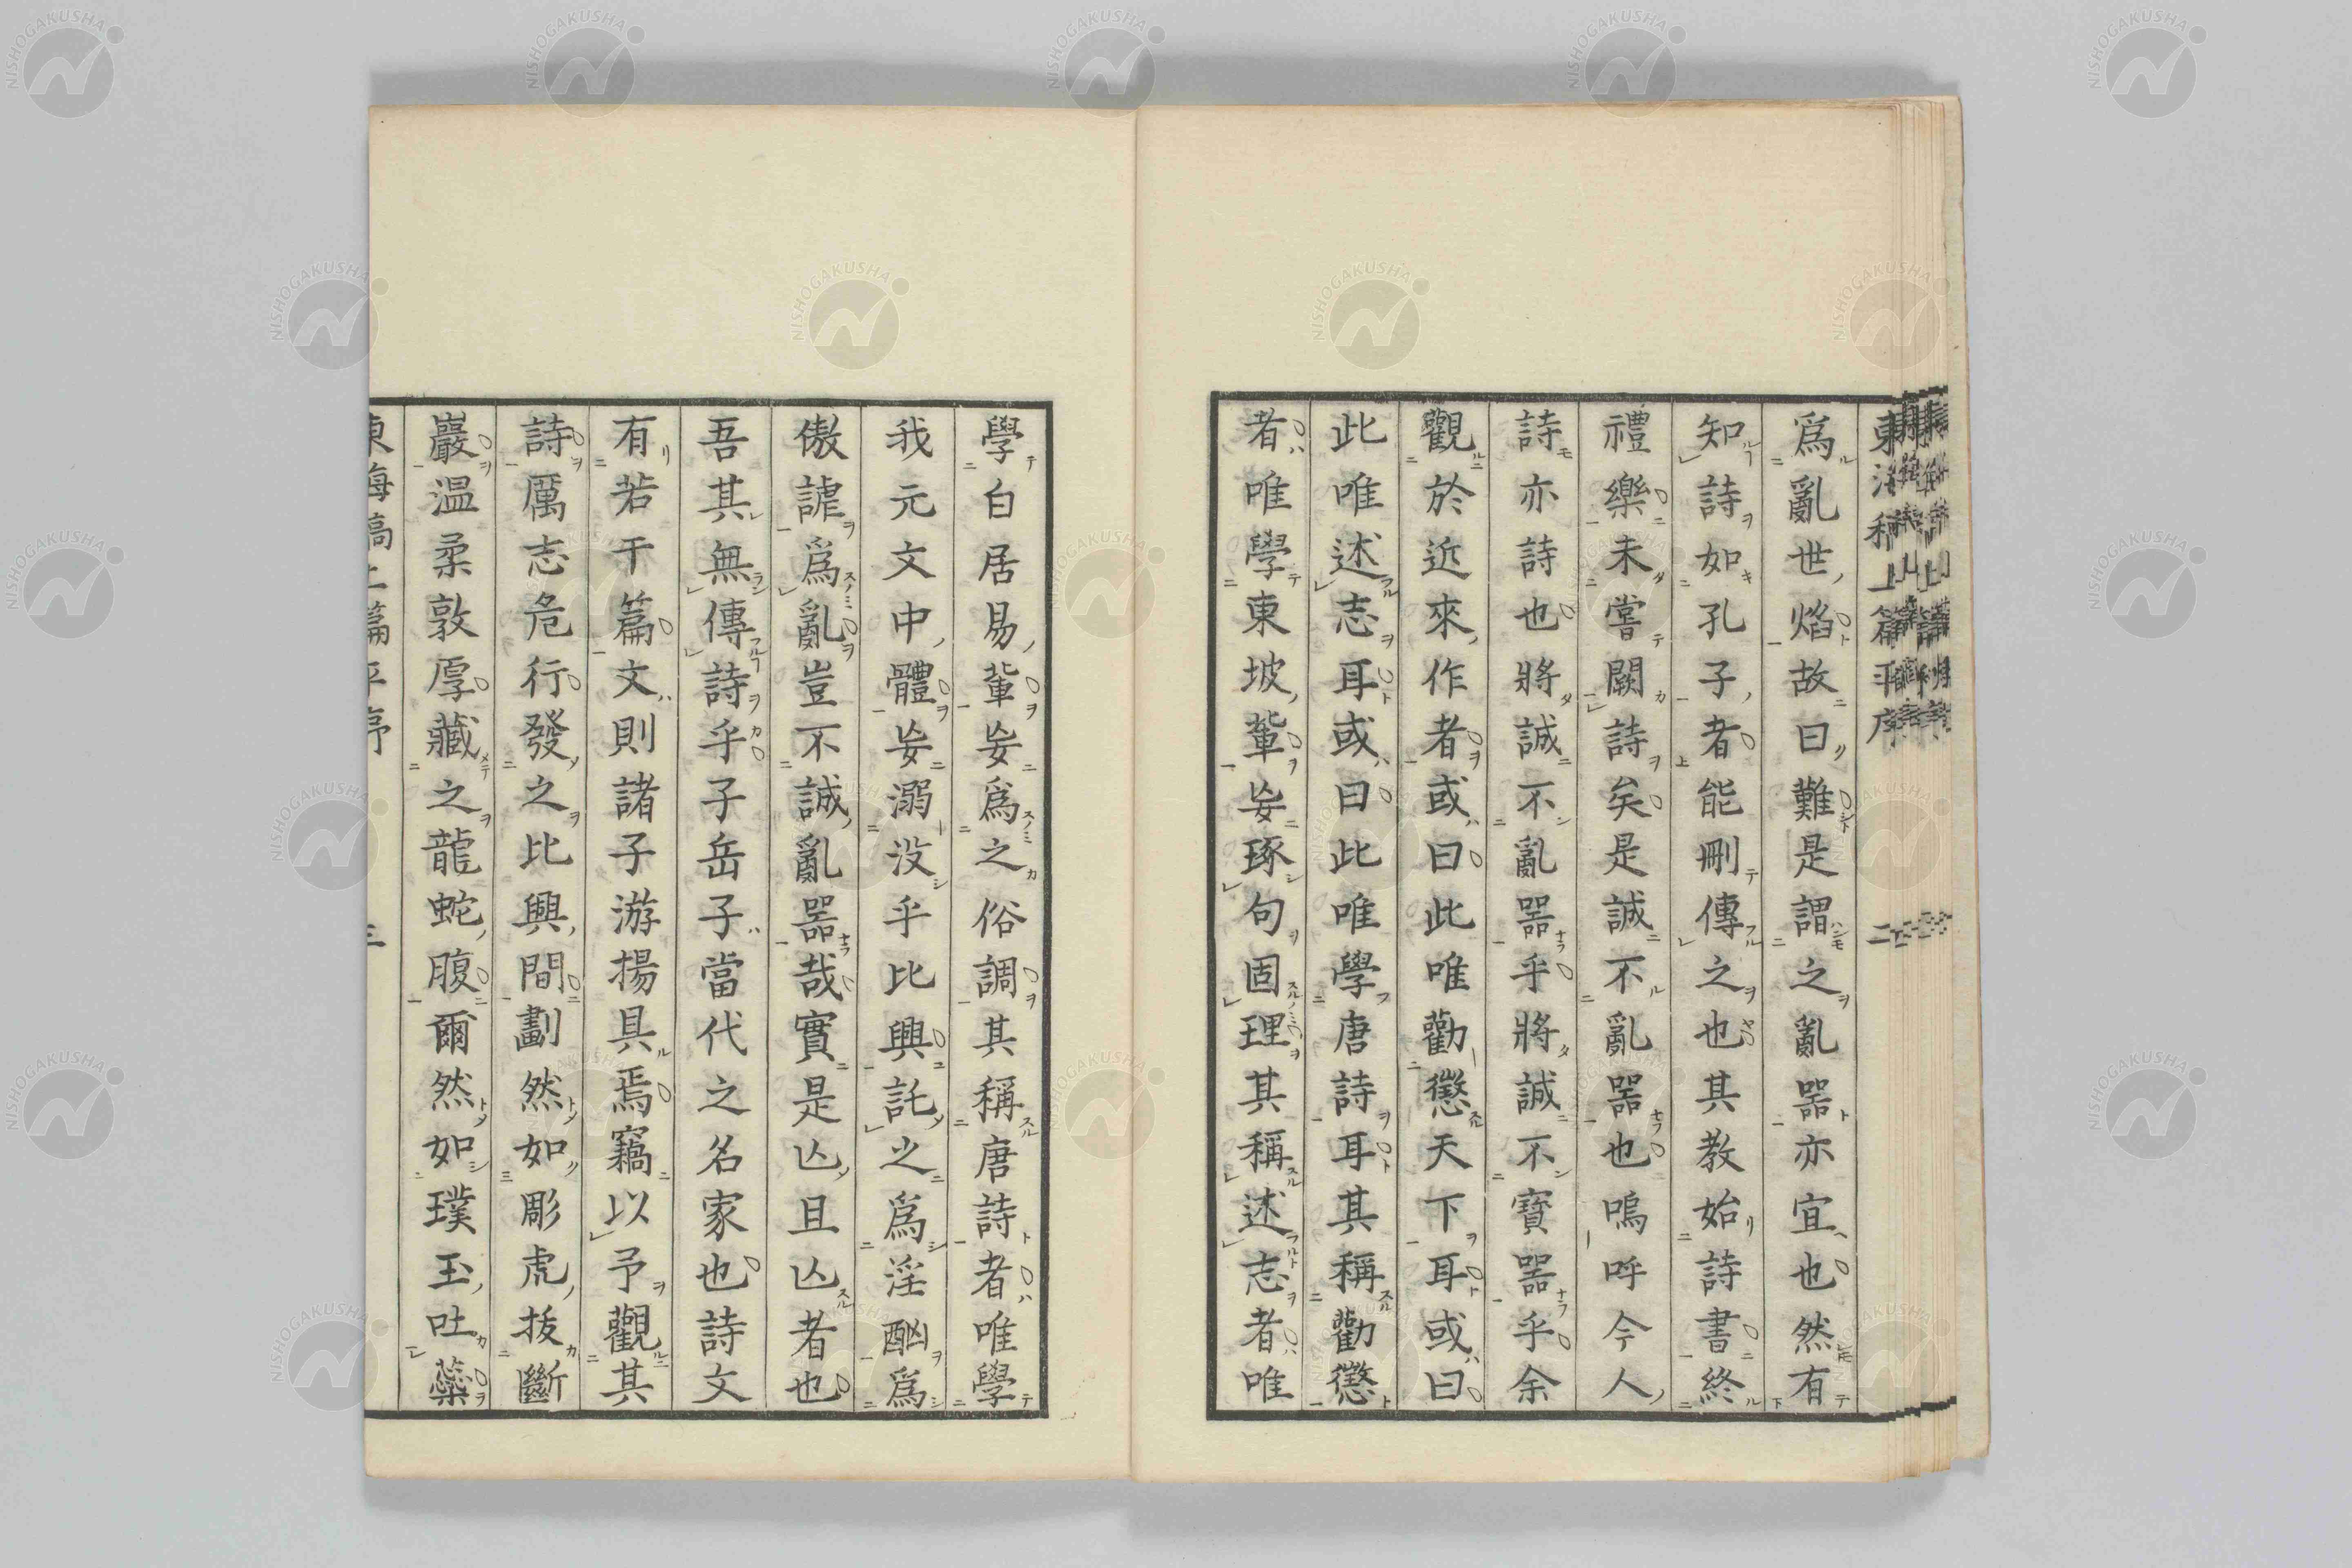 爲亂世焰故曰難是謂之亂噐亦宜也然有
知詩如孔子者能刪傳之也其教始詩書終
禮樂未嘗闕詩矣是誠不亂噐也嗚呼今人
詩亦詩也將誠不亂噐乎將誠不寶噐乎余
觀於近來作者或曰此唯勸懲天下耳或曰
此唯述志耳或曰此唯學唐詩耳其稱勸懲
者唯學東坡輩妄琢句固理其稱述志者唯
學白居易輩妄爲之俗調其稱唐詩者唯學
我元文中體妄溺没乎比興託之爲淫酗爲
傲謔爲亂豈不誠亂噐哉實是亾且亾者也
吾其無傳詩乎子岳子當代之名家也詩文
有若干篇文則諸子游揚具焉竊以予觀其
詩厲志危行發之比興間劃然如彫虎拔斷
巖温柔敦厚藏之龍蛇腹爾然如璞玉吐蘂
三
NISHOGAKUSHA